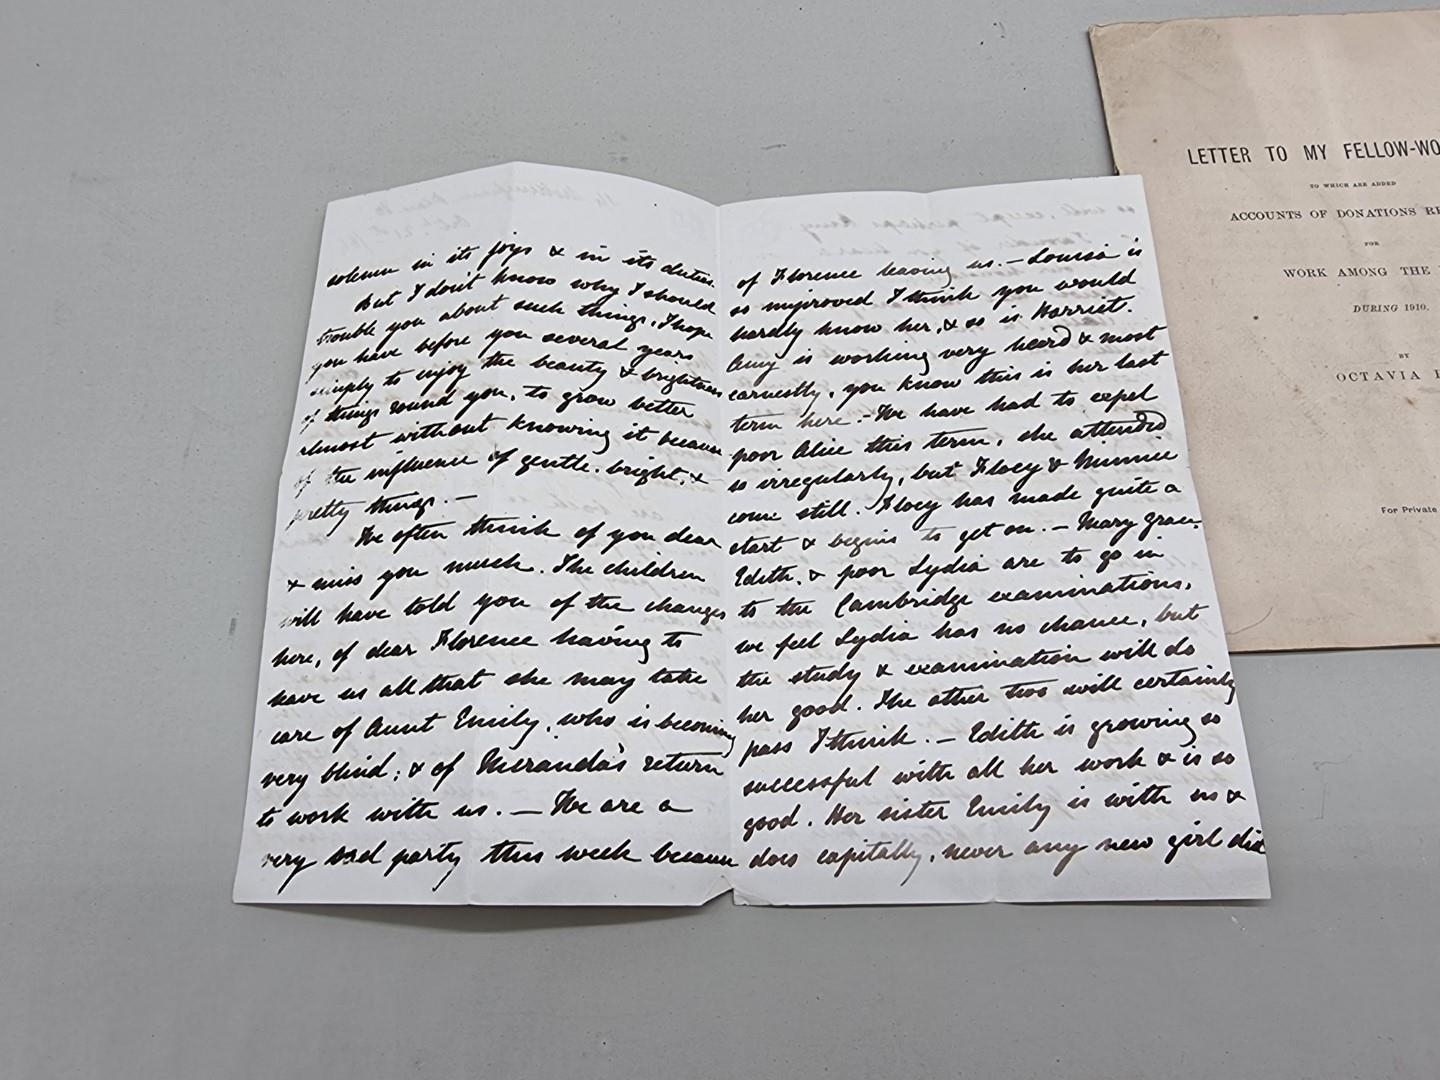 solemn in its joys & in its duties.
But I don't know why I should
trouble you about such things, I hope
you have before you several years
simply to enjoy the beauty & brightness
of things round you, to grow better
almost without knowing it because
of the influence of gentle, bright, &
pretty things. —
We often think of you dear
& miss you much. The children
will have told you of the changes
here, of dear Florence having to
leave us all that she may take
care of Aunt Emily, who is becoming
very blind; & of Miranda's return
to work with us. — We are a
very sad party this week because
of Florence leaving us. — Louisa is
so improved I think you would
hardly know her, & so is Harriet.
Amy is working very heard & most
earnestly, you know this is her last
term here. — We have had to expel
poor Alice this term, she attended
so irregularly, but Flocy & Minnie
come still. Flocy has made quite a
start & begins to get on. — Mary grace,
Edith, & poor Lydia are to go in
to the Cambridge examinations,
we feel Lydia has no chance, but
the study & examination will do
her good. The other two will certainly
pass I think. — Edith is growing so
successful with all her work & is so
good. Her sister Emily is with us &
does capitally, never any new girl did
LETTER TO MY FELLOW-WO
TO WHICH ARE ADDED
ACCOUNTS OF DONATIONS RE
FOR
WORK AMONG THE
DURING 1910.
BY
OCTAVIA
For Private